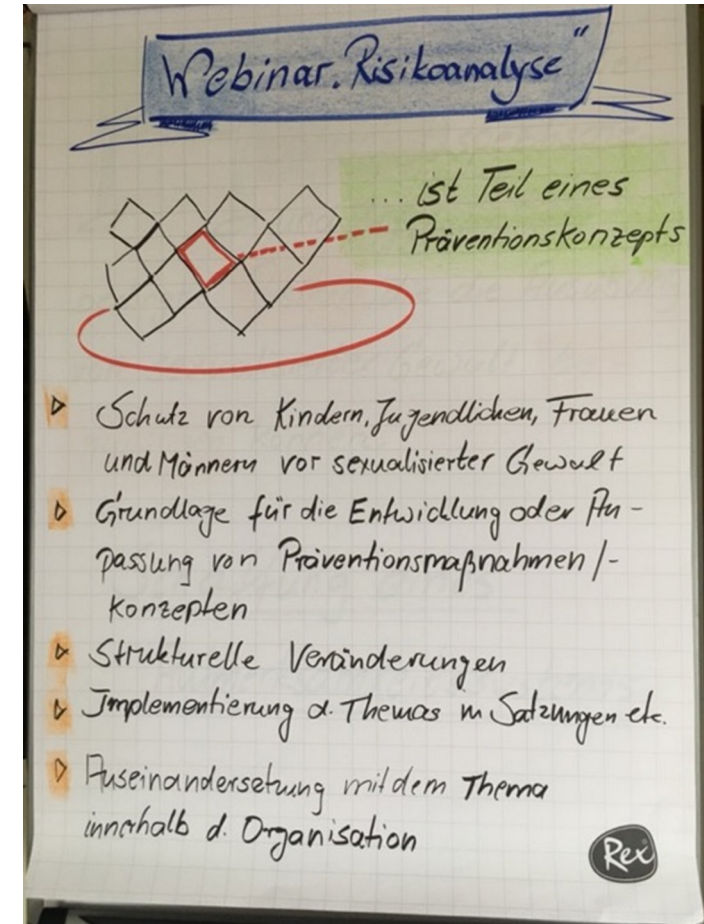 Webinar „Risikoanalyse"
... ist Teil eines
Präventionskonzepts
Schutz von Kindern, Jugendlichen, Frauen
und Männern vor sexualisierter Gewalt
Grundlage für die Entwicklung oder An-
passung von Präventionsmaßnahmen/-
konzepten
Strukturelle Veränderungen
Implementierung d. Themas in Satzungen etc.
Auseinandersetzung mit dem Thema
innerhalb d. Organisation
Rex